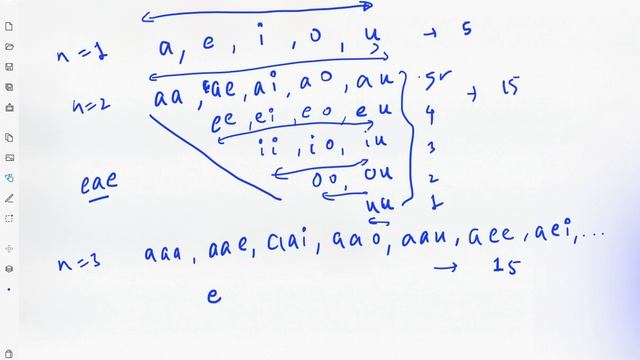 n=1 a, e, i, o, u → 5
n=2 aa, ae, ai, ao, au 5 → 15
ee, ei, eo, eu 4
ii, io, iu 3
oo, ou 2
uu 1
eae
n=3 aaa, aae, aai, aao, aau, aee, aei, ...
→ 15
e